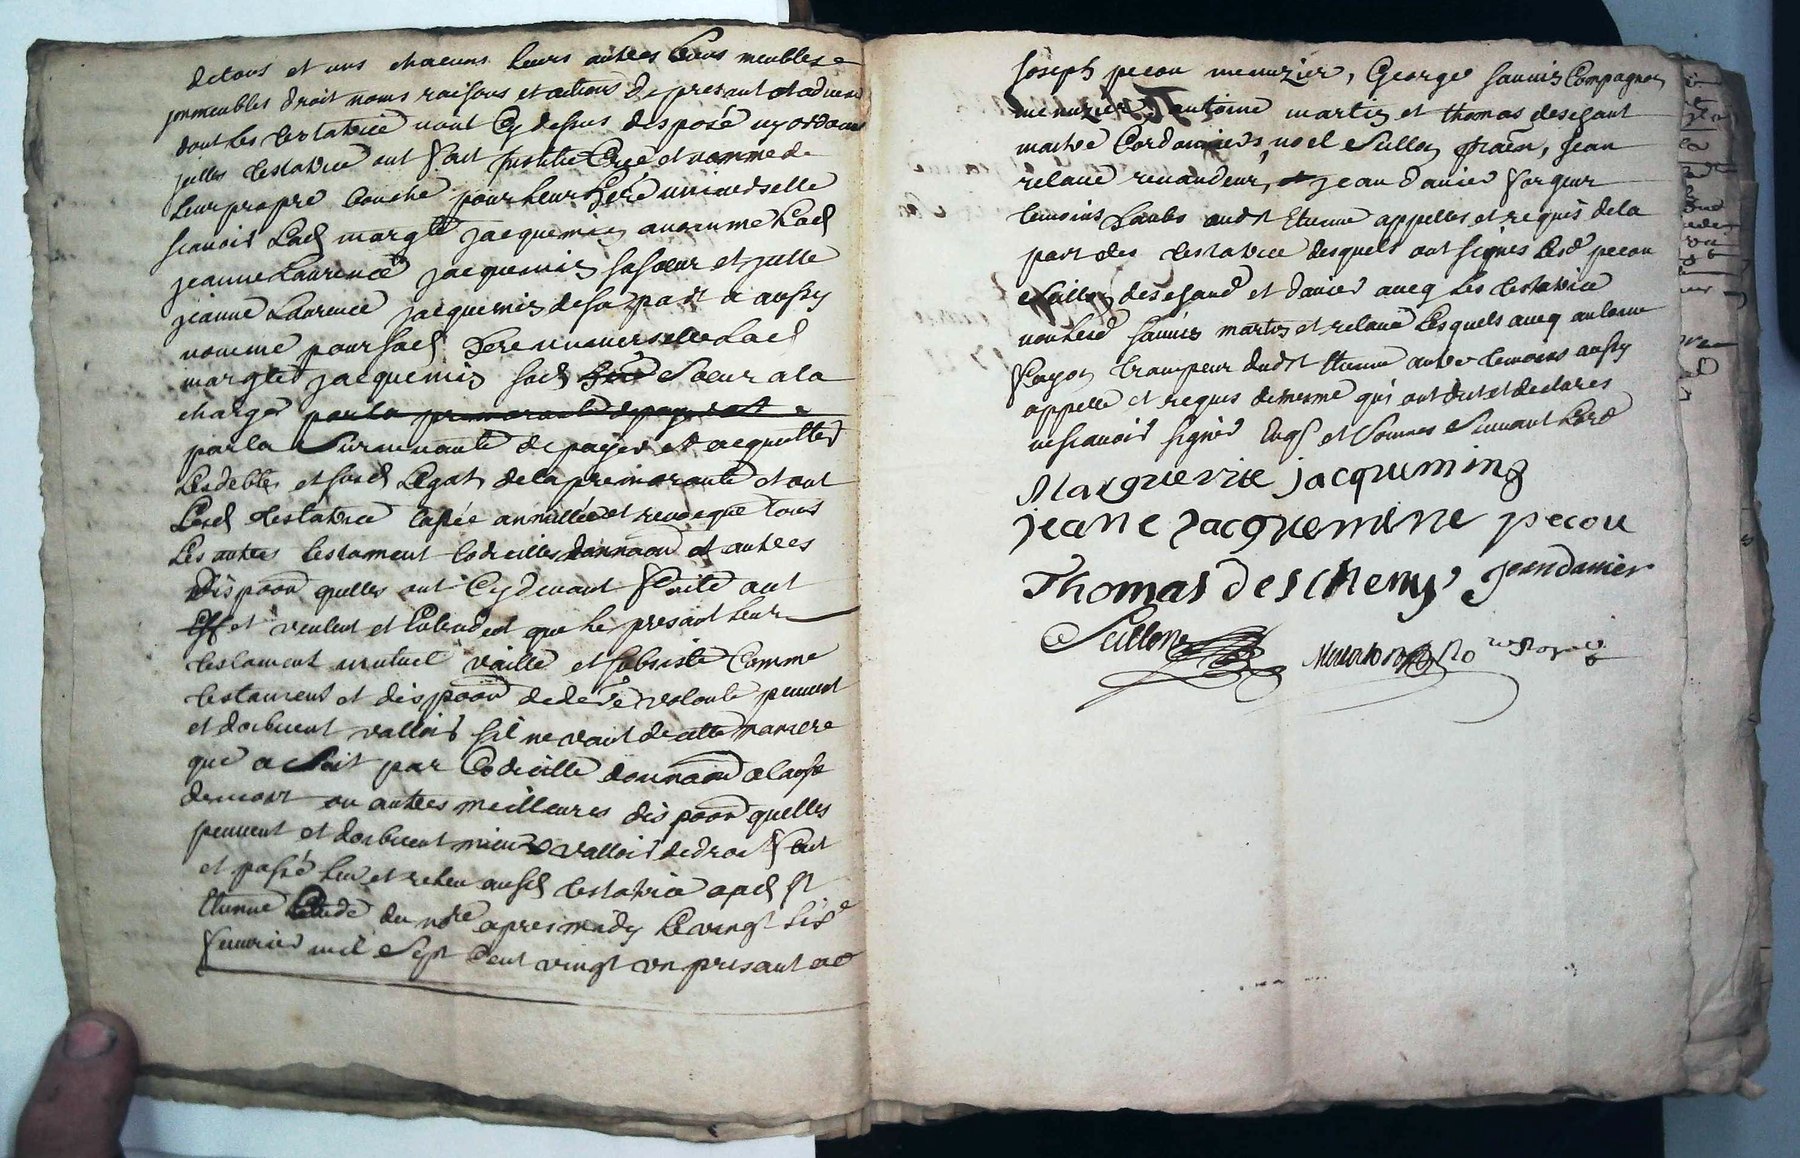 de tous et uns chacuns leurs autres biens meubles
jmmeubles droit noms raisons et actions de presant et aduenir
dont les testatrice nont Cy dessus disposé ny ordonné
jcelles testatrice ont fait justitué Creé et nommé de
leur propre bouche pour leur heré uniuerselle
scauoir Lad margte jacquemin a nommé Lad
jeanne Laurence jacquemin sa soeur et jcelle
jeanne Laurence jacquemin de sa part a aussy
nommé pour sad here uniuerselle Lad
margte jacquemin sad soeur a la
charge
par la suruiuante de payer et acquitter
Les debtes et susd Legat de la premorante et ont
Lesd testatrice Cassé annullée et reuocqué tous
Les autres testament Codicilles donnaon et autres
dispoon quelles ont Cy deuant faite ont
et veulent et Entendent que le presant leur
testament mutuel vaille et subsiste Comme
testament et dispoon de dere volonté peuuent
et doibuent valloir sil ne vaut de cette maniere
que ce soit par Codicille donnaon a Cause
de mort ou autres meilleures dispoon quelles
peuuent et doibuent mieux valloir de droit fait
et passé leu et releu ausd testatrice aud St
Etienne Etude du nore apres midy le vingt six
feurier mil sept Cent vingt un presant a ce
Joseph pecou menuzier, George Compagnon
menuzier antoine martin et thomas deschant
maitre Cordonniers noel Sullon praen, jean
relaue remandeur, jean danier forgeur
temoins tants audt Etienne appelles et requis de la
part des testatrice desquels ont signes Lesd pecou
Sullon deschand et danier aueq les testatrice
non Lesd martin et relaue Lesquels aueq antoine
fayon trampeur dudt Etienne autre temoins aussy
appelle et requis de mesme qui ont dut et declares
ne scauoir signer Enqs et sommes suiuant Lord
Marguerite jacquming
jeane Jacquemine pecou
Thomas deschemy Jean danier
Sullon